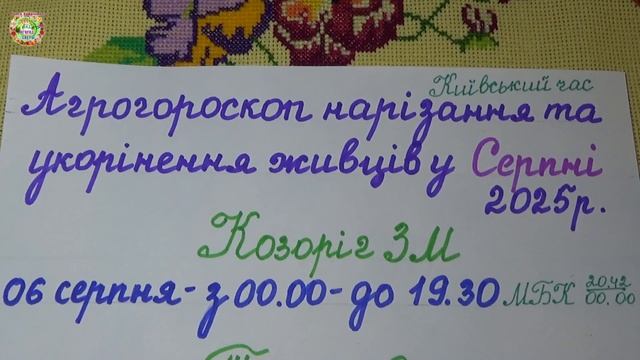 Київський час
Агрогороскоп нарізання та
укорінення живців у Серпні
2025р.
Козоріг ЗМ
06 серпня - з 00.00 - до 19.30 МБК 20.42
00.00